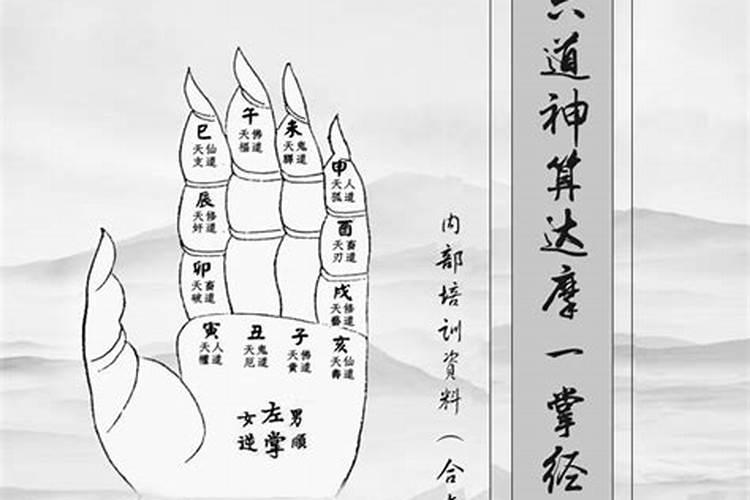 六道神算达摩一掌经
内部培训資料（合
巳
仙道
天支
午
佛道
天福
未
鬼道
天驛
申
人道
天孤
辰
修道
天奸
酉
畜道
天刃
卯
畜道
天破
戌
修道
天藝
寅
人道
天權
丑
鬼道
天厄
子
佛道
天貴
亥
仙道
天壽
男順
左掌
女逆